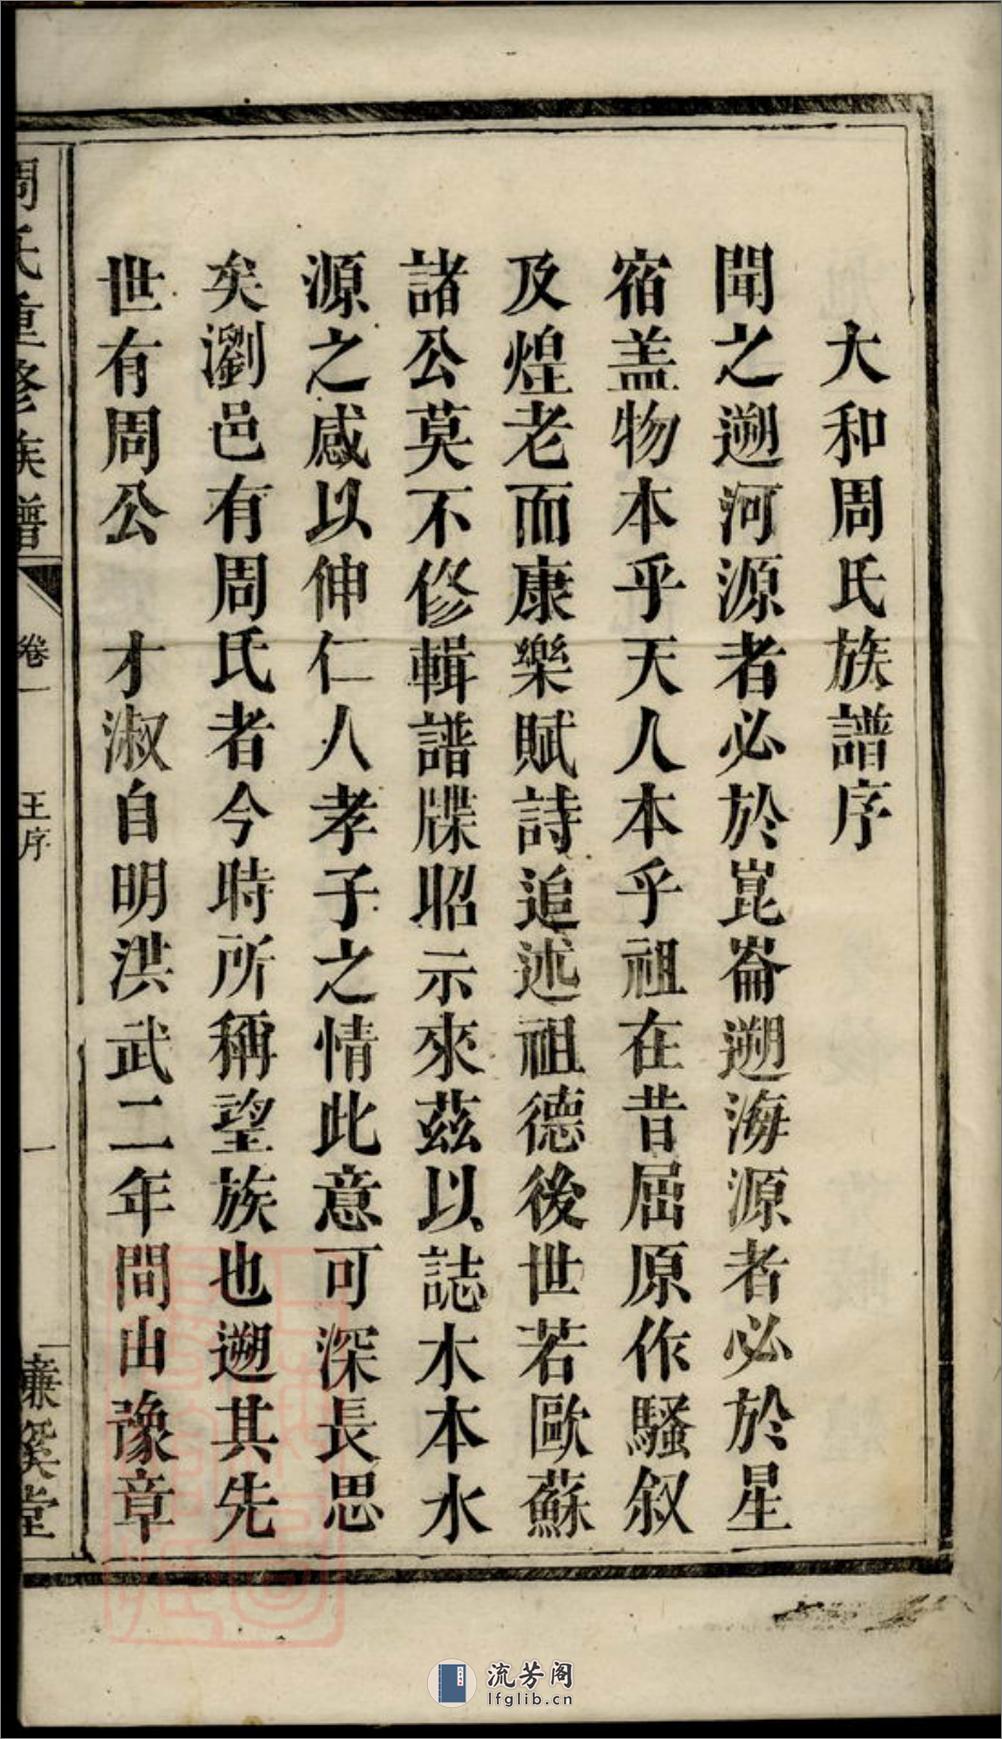 大和周氏族譜序
聞之遡河源者必於崑崙遡海源者必於星
宿盖物本乎天人本乎祖在昔屈原作騷叙
及煌老而康樂賦詩追述祖德後世若歐蘇
諸公莫不修輯譜牒昭示來茲以誌木本水
源之感以伸仁人孝子之情此意可深長思
矣瀏邑有周氏者今時所稱望族也遡其先
世有周公 才淑自明洪武二年間由豫章
周氏重修族譜
卷一
王序
一
濂溪堂
流芳阁
lfglib.cn